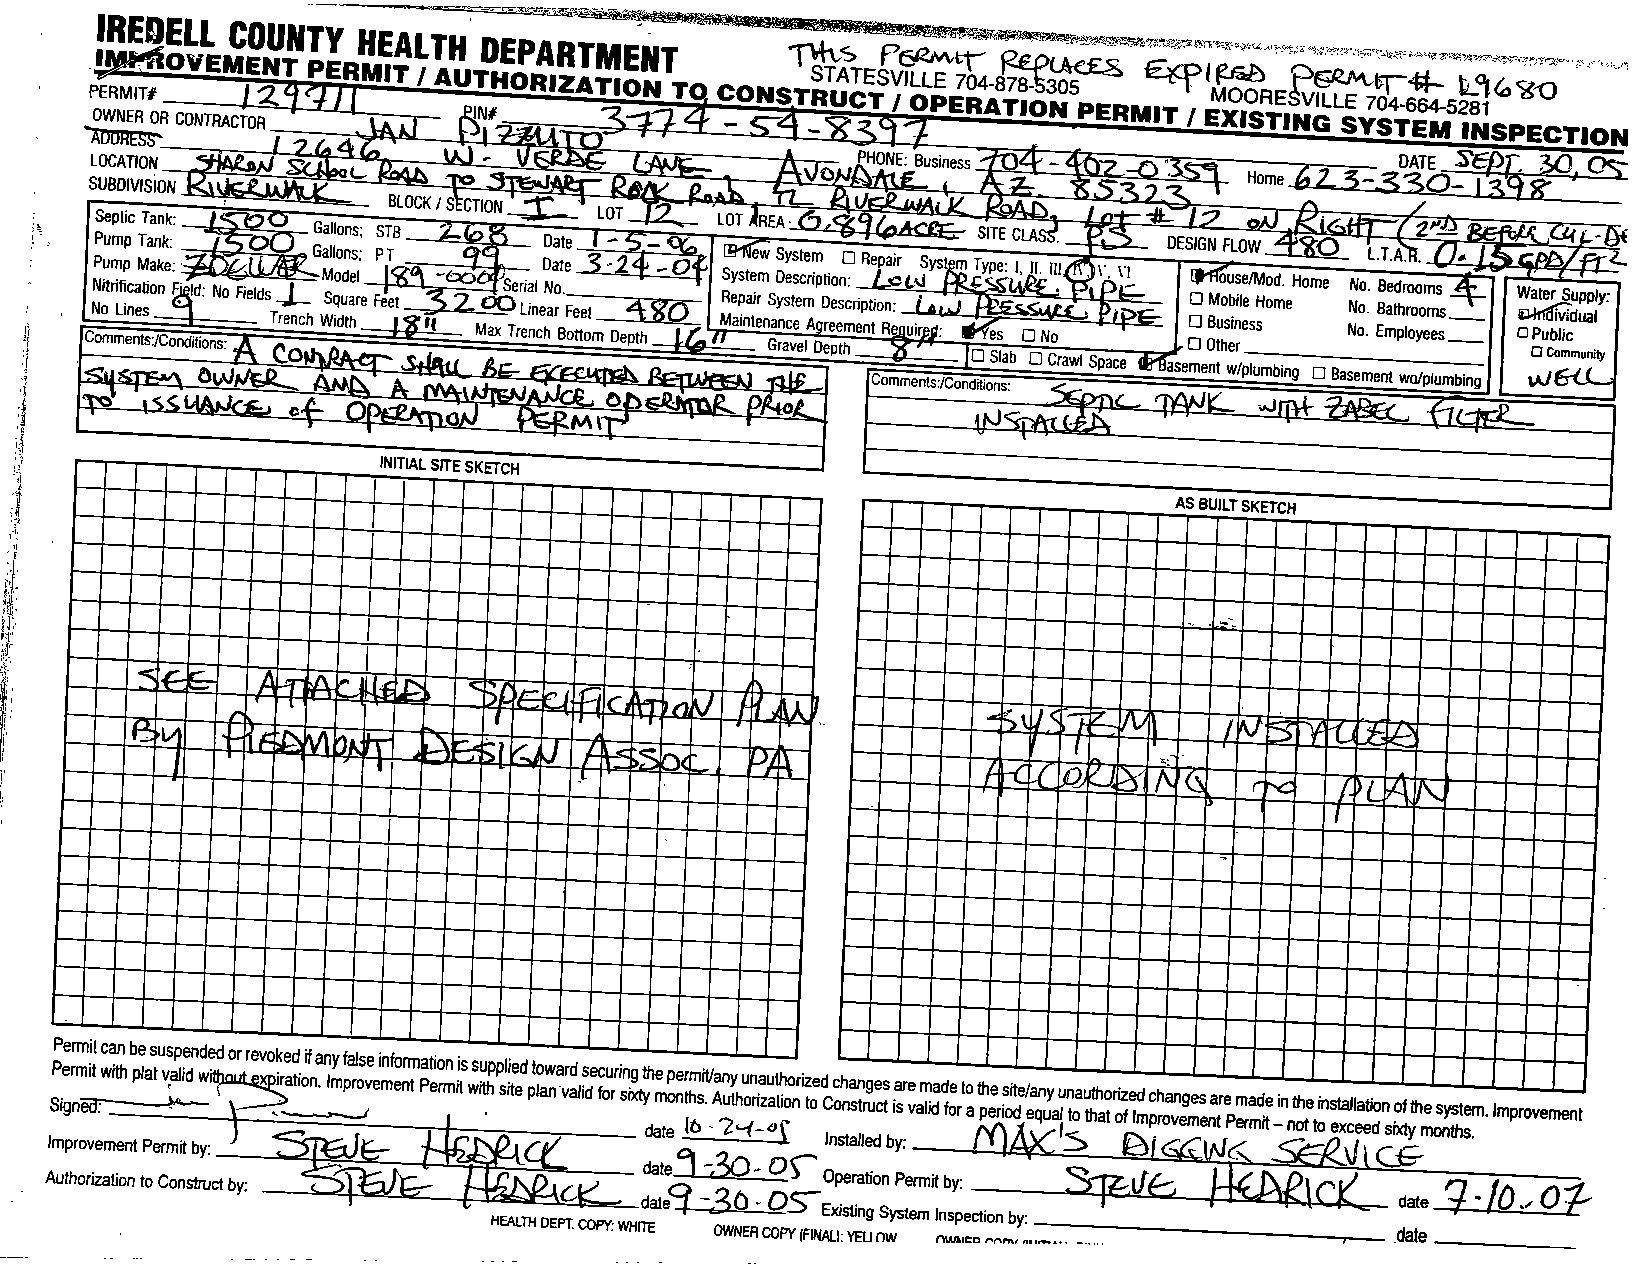 IREDELL COUNTY HEALTH DEPARTMENT
THIS PERMIT REPLACES EXPIRED PERMIT # L9680
STATESVILLE 704-878-5305 MOORESVILLE 704-664-5281
IMPROVEMENT PERMIT / AUTHORIZATION TO CONSTRUCT / OPERATION PERMIT / EXISTING SYSTEM INSPECTION
PERMIT# 129711 PIN# 3774-54-8397
OWNER OR CONTRACTOR JAN PIZZUTO PHONE: Business 704-402-0359 Home 623-330-1398 DATE SEPT. 30, 05
ADDRESS 12646 W. VERDE LANE, AVONDALE, AZ 85323
LOCATION SHARON SCHOOL ROAD TO STEWART ROCK ROAD, TL RIVERWALK ROAD, LOT # 12 ON RIGHT (2ND BEFORE CUL-DE
SUBDIVISION RIVERWALK BLOCK / SECTION I LOT 12 LOT AREA: 0.896 ACRE SITE CLASS. PS DESIGN FLOW 480 L.T.A.R. 0.15 GPD/FT2
Septic Tank: 1500 Gallons; STB 268 Date 1-5-06
Pump Tank: 1500 Gallons; PT 99 Date 3-24-04
Pump Make: ZOELLER Model 189-0004 Serial No.
Nitrification Field: No Fields 1 Square Feet 3200 Linear Feet 480
No Lines 9 Trench Width 18" Max Trench Bottom Depth 16" Gravel Depth 8"
New System Repair System Type: I, II, III, IV, V, VI
System Description: LOW PRESSURE PIPE
Repair System Description: LOW PRESSURE PIPE
Maintenance Agreement Required: Yes No
House/Mod. Home No. Bedrooms 4
Mobile Home No. Bathrooms
Business No. Employees
Other
Slab Crawl Space Basement w/plumbing Basement wo/plumbing
Water Supply:
Individual
Public
Community
WELL
Comments:/Conditions: A CONTRACT SHALL BE EXECUTED BETWEEN THE
SYSTEM OWNER AND A MAINTENANCE OPERATOR PRIOR
TO ISSUANCE OF OPERATION PERMIT
Comments:/Conditions: SEPTIC TANK WITH ZABEL FILTER
INSTALLED
INITIAL SITE SKETCH
SEE ATTACHED SPECIFICATION PLAN
By PIEDMONT DESIGN ASSOC. PA
AS BUILT SKETCH
SYSTEM INSTALLED
ACCORDING TO PLAN
Permit can be suspended or revoked if any false information is supplied toward securing the permit/any unauthorized changes are made to the site/any unauthorized changes are made in the installation of the system. Improvement
Permit with plat valid without expiration. Improvement Permit with site plan valid for sixty months. Authorization to Construct is valid for a period equal to that of Improvement Permit – not to exceed sixty months.
Signed: date 10-24-05 Installed by: MAX'S DIGGING SERVICE
Improvement Permit by: STEVE HEDRICK date 9-30-05 Operation Permit by: STEVE HEDRICK date 7-10-07
Authorization to Construct by: STEVE HEDRICK date 9-30-05 Existing System Inspection by: date
HEALTH DEPT. COPY: WHITE OWNER COPY (FINAL): YELLOW